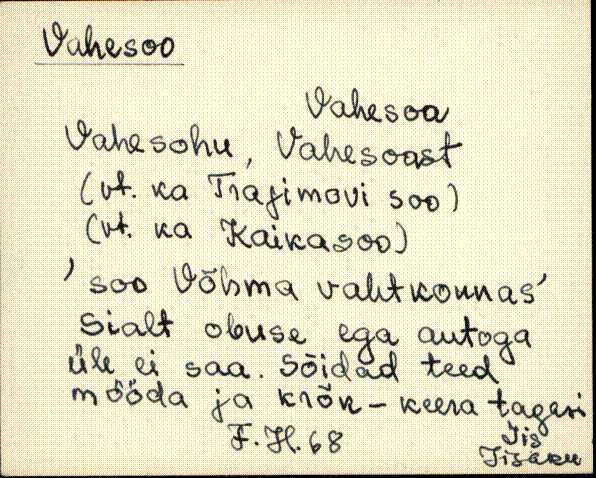 Vahesoo
Vahesoa
Vahesohu, Vahesoast
(vt. ka Trajimovi soo)
(vt. ka Kaikasoo)
'soo Võhma vahtkonnas'
Sialt obuse ega autoga
üle ei saa. Sõidad teed
mööda ja krõnk-keera tagasi
F. H. 68
Iis
Iisaku